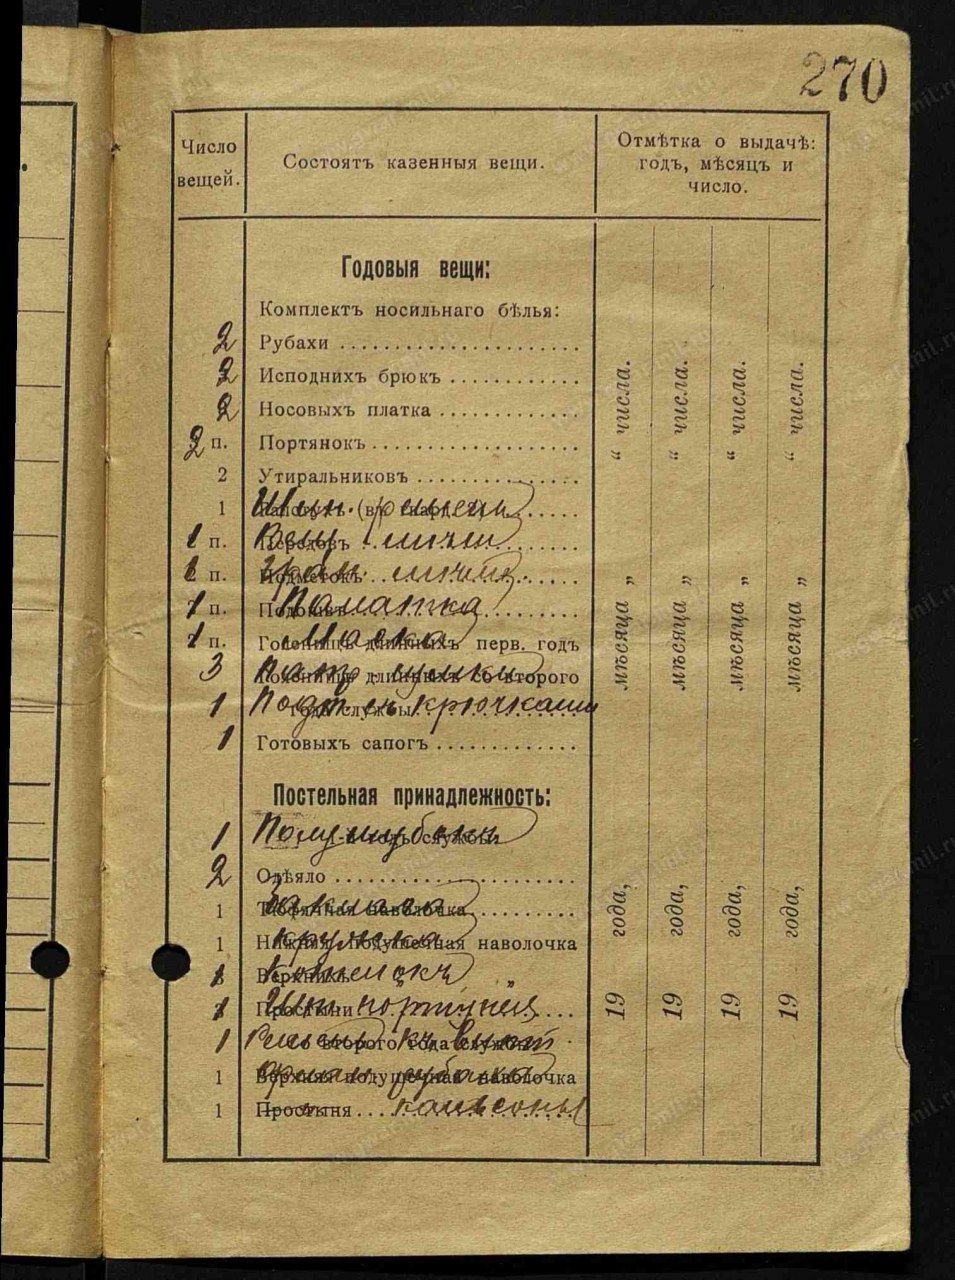 270
Число вещей.
Состоятъ казенныя вещи.
Отмѣтка о выдачѣ: годъ, мѣсяцъ и число.
Годовыя вещи:
Комплектъ носильнаго бѣлья:
2 Рубахи
2 Исподнихъ брюкъ
2 Носовыхъ платка
2 п. Портянокъ
2 Утиральниковъ
1
1 п. Передовъ Вещ.
п. Подметокъ
1 п. Палатка
1 п. Голенищъ длинныхъ перв. годъ Маска
3 Голенищъ длинныхъ со второго
1 года службы крючками
1 Готовыхъ сапогъ
Постельная принадлежность:
1 службы: Полушубокъ
2 Одѣяло
1 Тюфячная наволочка
1 Нижняя подушечная наволочка Кружка
1 Верхнихъ „ Котелокъ
1 Простыни портупея
1 со второго года службы:
1 Верхняя подушечная наволочка рубаха
1 Простыня кальсоны
19 года, мѣсяца „ “ числа.
19 года, мѣсяца „ “ числа.
19 года, мѣсяца „ “ числа.
19 года, мѣсяца „ “ числа.